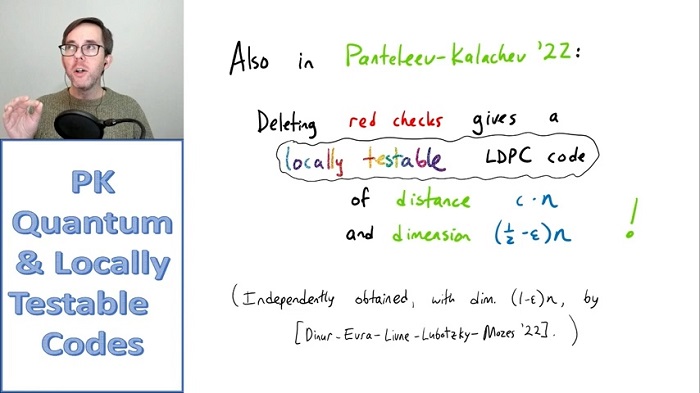 Also in Panteleev-Kalachev '22:
Deleting red checks gives a
locally testable LDPC code
of distance c·n
and dimension (1/2-ε)n !
(Independently obtained, with dim. (1-ε)n, by
[Dinur-Evra-Livne-Lubotzky-Mozes '22]. )
PK
Quantum
& Locally
Testable
Codes